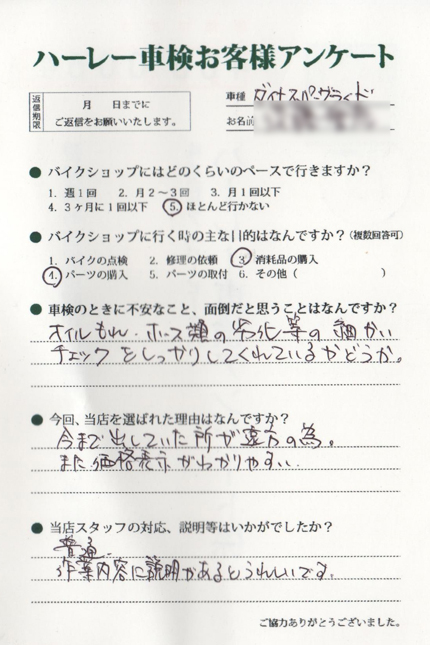 ハーレー車検お客様アンケート
返信期限
月 日までに
ご返信をお願いいたします。
車種 ダイナスーパーグライド
お名前
● バイクショップにはどのくらいのペースで行きますか?
1. 週1回 2. 月2~3回 3. 月1回以下
4. 3ヶ月に1回以下 5. ほとんど行かない
● バイクショップに行く時の主な目的はなんですか?(複数回答可)
1. バイクの点検 2. 修理の依頼 3. 消耗品の購入
4. パーツの購入 5. パーツの取付 6. その他( )
● 車検のときに不安なこと、面倒だと思うことはなんですか?
オイルもれ・ホース類の劣化等の細かい
チェックをしっかりしてくれているかどうか。
● 今回、当店を選ばれた理由はなんですか?
今まで出していた所が遠方の為。
また価格表示がわかりやすい
● 当店スタッフの対応、説明等はいかがでしたか?
普通。
作業内容に説明があるとうれしいです。
ご協力ありがとうございました。